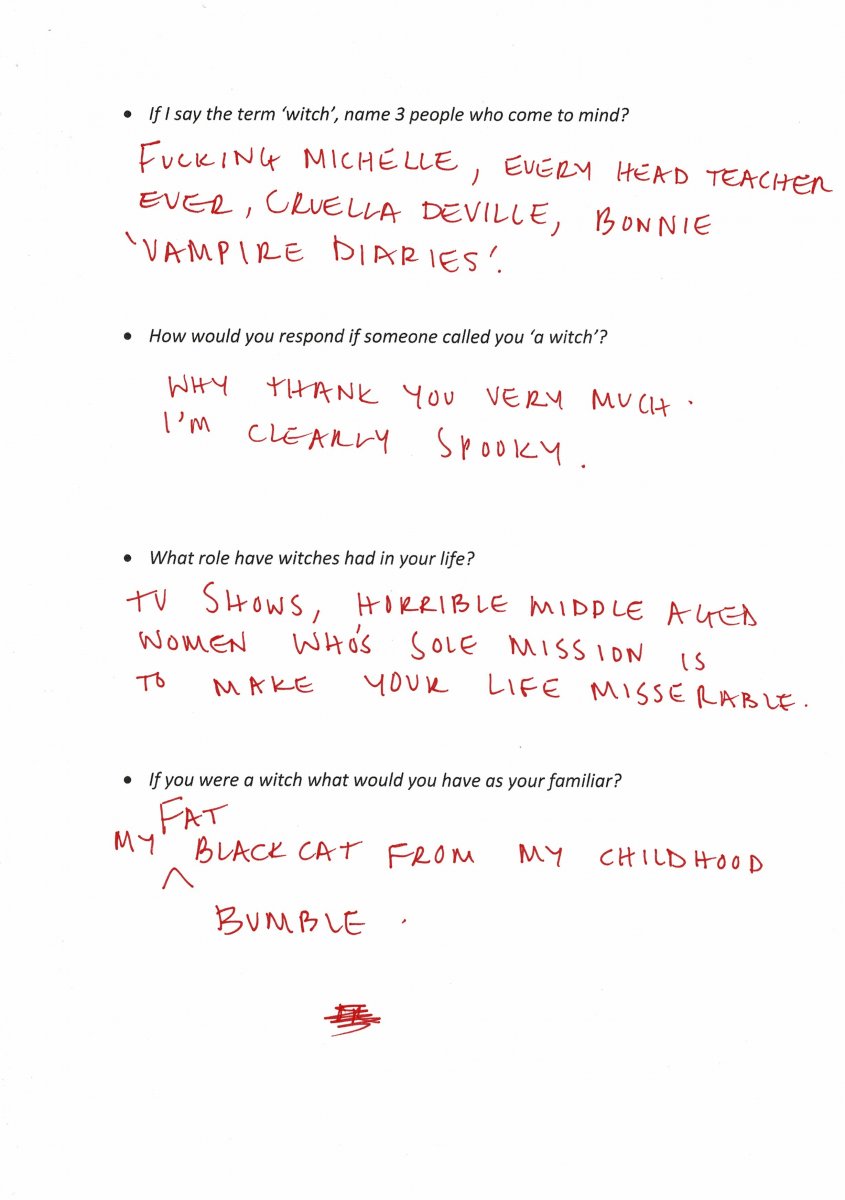 • If I say the term ‘witch’, name 3 people who come to mind?
FUCKING MICHELLE, EVERY HEAD TEACHER
EVER, CRUELLA DEVILLE, BONNIE
'VAMPIRE DIARIES'.
• How would you respond if someone called you ‘a witch’?
WHY THANK YOU VERY MUCH.
I'M CLEARLY SPOOKY.
• What role have witches had in your life?
TV SHOWS, HORRIBLE MIDDLE AGED
WOMEN WHO'S SOLE MISSION IS
TO MAKE YOUR LIFE MISSERABLE.
• If you were a witch what would you have as your familiar?
MY FAT BLACK CAT FROM MY CHILDHOOD
BUMBLE.